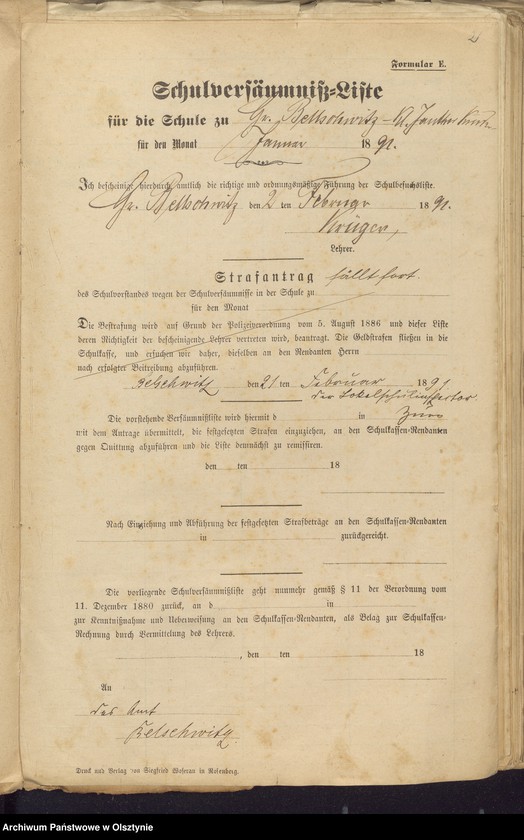 2
Formular E.
Schulversäumniß-Liste
für die Schule zu Gr. Bellschwitz
für den Monat Januar 1891.
Ich bescheinige hierdurch amtlich die richtige und ordnungsmäßige Führung der Schulbesuchsliste.
Gr. Bellschwitz den 2 ten Februar 1891.
Krüger,
Lehrer.
Strafantrag fällt fort.
des Schulvorstandes wegen der Schulversäumnisse in der Schule zu
für den Monat
Die Bestrafung wird auf Grund der Polizeiverordnung vom 5. August 1886 und dieser Liste
deren Richtigkeit der bescheinigende Lehrer vertreten wird, beantragt. Die Geldstrafen fließen in die
Schulkasse, und ersuchen wir daher, dieselben an den Rendanten Herrn
nach erfolgter Beitreibung abzuführen.
Belschwitz den 21 ten Februar 1891
der Lokalschulinspector
Die vorstehende Versäumnißliste wird hiermit d in
mit dem Antrage übermittelt, die festgesetzten Strafen einzuziehen, an den Schulkassen-Rendanten
gegen Quittung abzuführen und die Liste demnächst zu remittiren.
den ten 18
Nach Einziehung und Abführung der festgesetzten Strafbeträge an den Schulkassen-Rendanten
in zurückgereicht.
Die vorliegende Schulversäumnißliste geht nunmehr gemäß § 11 der Verordnung vom
11. Dezember 1880 zurück, an d in
zur Kenntnißnahme und Ueberweisung an den Schulkassen-Rendanten, als Belag zur Schulkassen-
Rechnung durch Vermittelung des Lehrers.
, den ten 18
An
das Amt
Belschwitz
Druck und Verlag von Siegfried Woseran in Rosenberg.
Archiwum Państwowe w Olsztynie